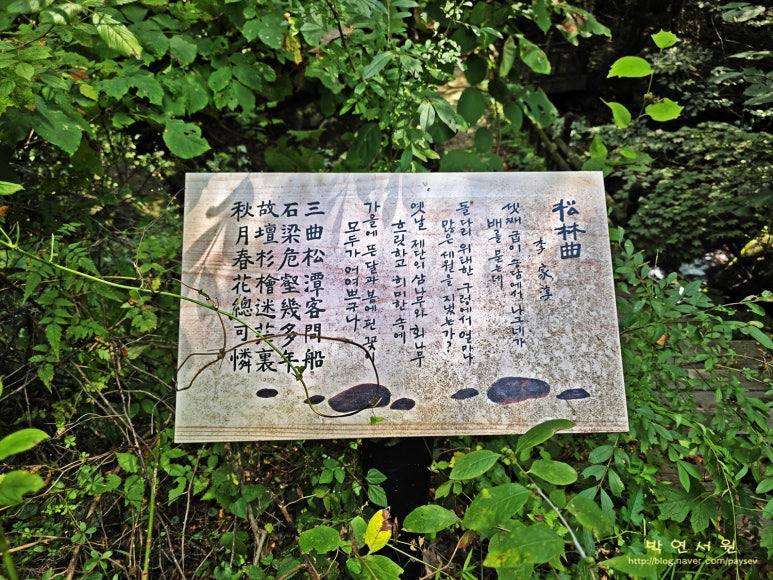 松林曲
李家淳
셋째 굽이 송담에서 나그네가
배를 묻는데
돌다리 위태한 구렁에서 얼마나
많은 세월을 지냈는가?
옛날 제단의 삼나무와 회나무
흐릿하고 희미한 속에
가을에 뜬 달과 봄에 핀 꽃이
모두가 어여쁘구나
三曲松潭客問船
石梁危壑幾多年
故壇杉檜迷茫裏
秋月春花總可憐
박연서원
http://blog.naver.com/paysev